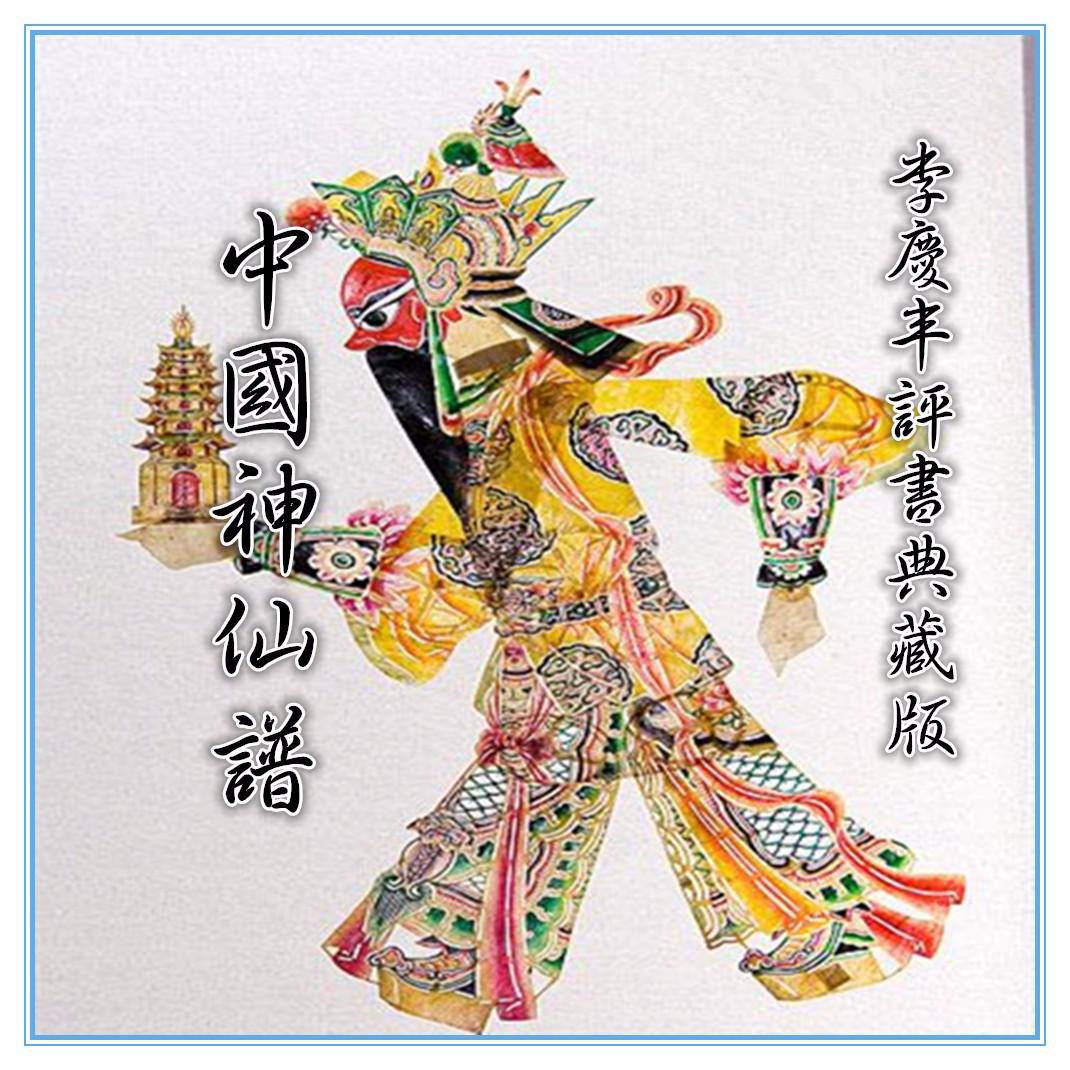 李慶丰評書典藏版
中國神仙譜